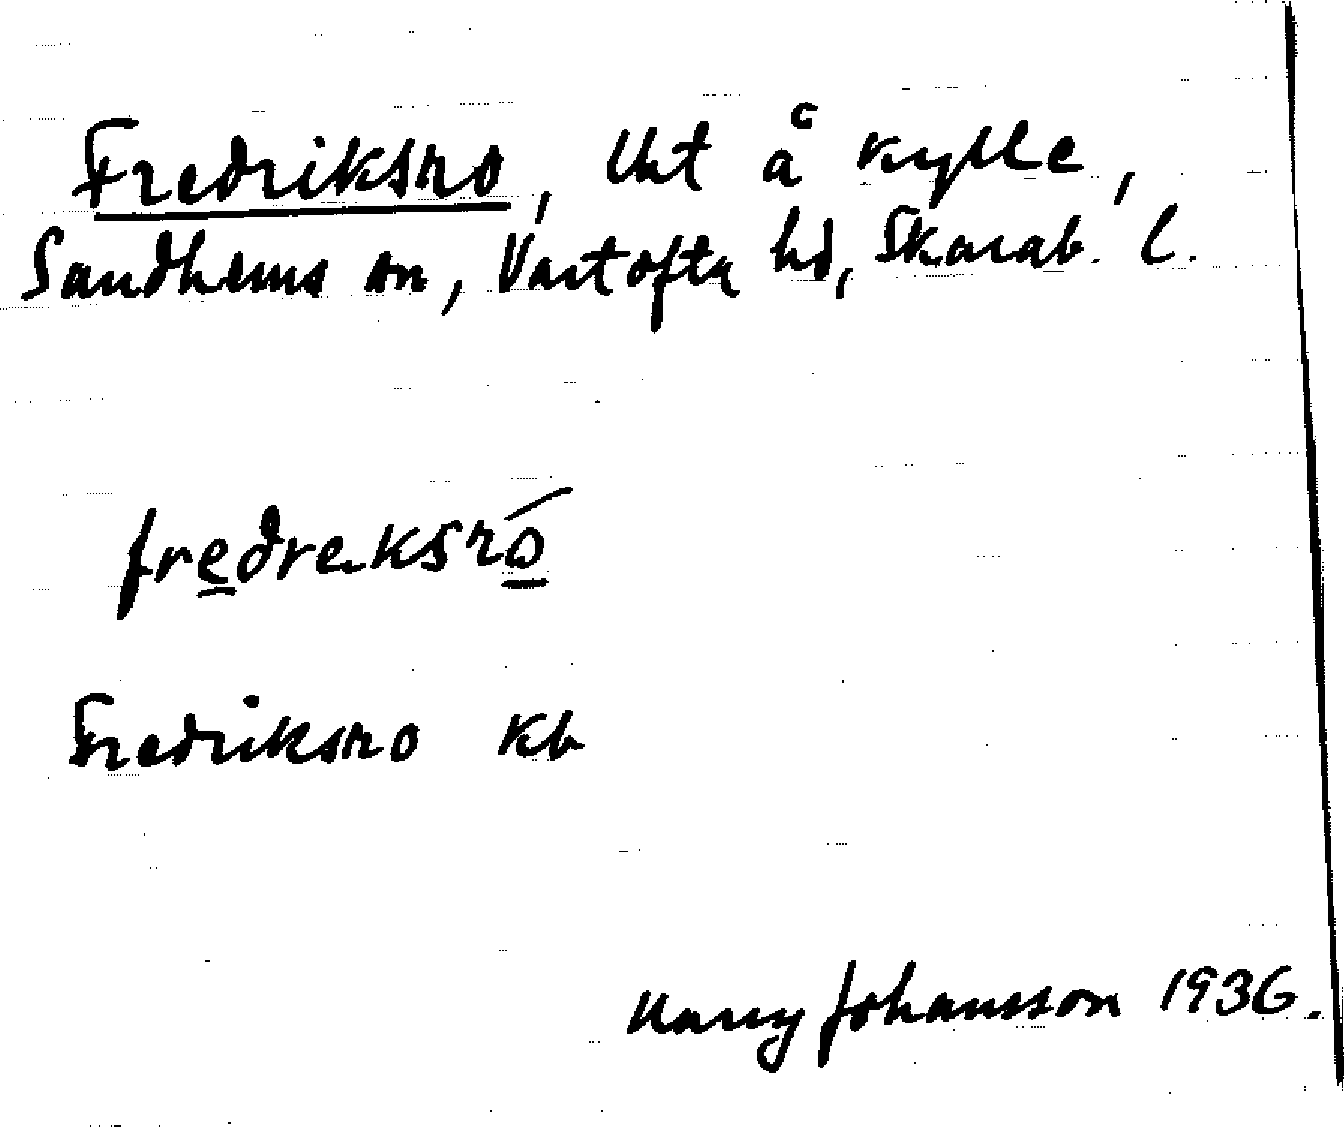 Fredriksro, Uht å Kylle,
Sandhems sn, Vartofta hd, Skarab. l.
fredreksró
Fredriksro Kb
Harry Johansson 1936.